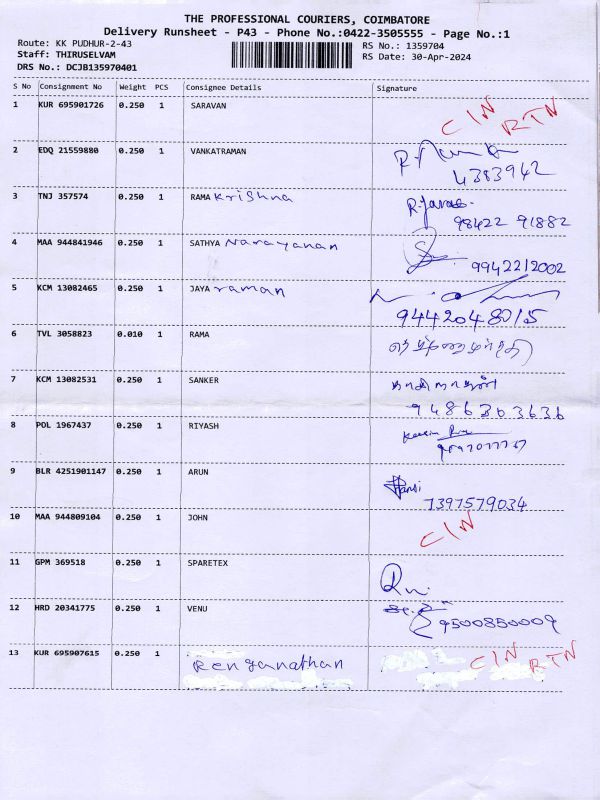 THE PROFESSIONAL COURIERS, COIMBATORE
Delivery Runsheet - P43 - Phone No.:0422-3505555 - Page No.:1
Route: KK PUDHUR-2-43
RS No.: 1359704
Staff: THIRUSELVAM
RS Date: 30-Apr-2024
DRS No.: DCJB135970401
S No Consignment No Weight PCS Consignee Details Signature
1 KUR 695901726 0.250 1 SARAVAN CIN RTN
2 EDQ 21559880 0.250 1 VANKATRAMAN
4383942
3 TNJ 357574 0.250 1 RAMA Krishna
98422 91882
4 MAA 944841946 0.250 1 SATHYA Narayanan
9942212002
5 KCM 13082465 0.250 1 JAYA raman
9442048015
6 TVL 3058823 0.010 1 RAMA
7 KCM 13082531 0.250 1 SANKER
9486303636
8 POL 1967437 0.250 1 RIYASH
9 BLR 4251901147 0.250 1 ARUN
7397579034
10 MAA 944809104 0.250 1 JOHN CIN
11 GPM 369518 0.250 1 SPARETEX
12 HRD 20341775 0.250 1 VENU
9500850009
13 KUR 695907615 0.250 1 Renganathan CIN RTN